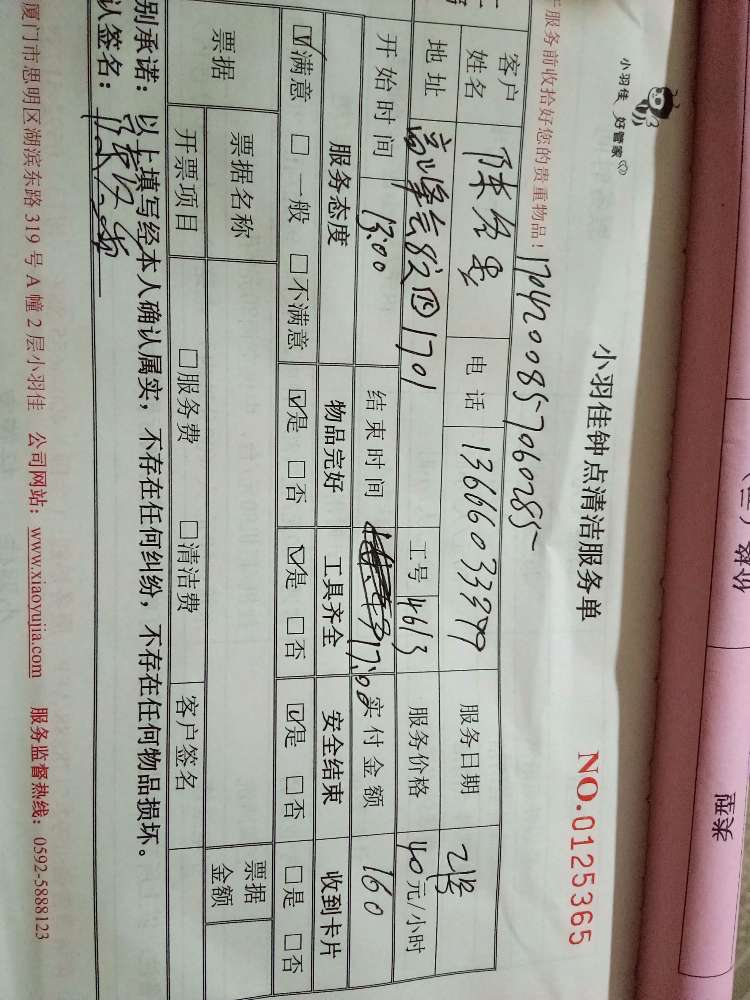 小羽佳 好管家
小羽佳钟点清洁服务单
NO.0125365
服务前收拾好您的贵重物品!
1704200857060285
客户姓名 电话 13666033399 服务日期 21号
地址 1701 工号 4613 服务价格 40元/小时
开始时间 13:00 结束时间 17:00 实付金额 160
服务态度 物品完好 工具齐全 安全结束 收到卡片
☑满意 □一般 □不满意 ☑是 □否 ☑是 □否 ☑是 □否 □是 □否
票据 票据名称 票据金额
开票项目 □服务费 □清洁费 客户签名
别承诺：以上填写经本人确认属实，不存在任何纠纷，不存在任何物品损坏。
认签名：
厦门市思明区湖滨东路319号A幢2层小羽佳 公司网站：www.xiaoyujia.com 服务监督热线：0592-5888123